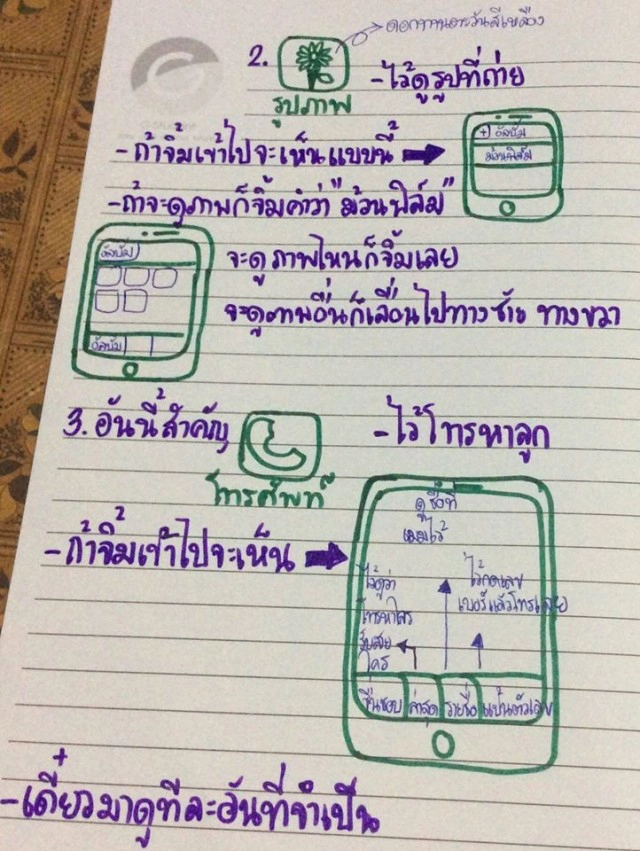 ดอกทานตะวันสีเหลือง
2.
-ไว้ดูรูปที่ถ่าย
รูปภาพ
-ถ้าจิ้มเข้าไปจะเห็นแบบนี้
+) อัลบั้ม
ม้วนฟิล์ม
-ถ้าจะดูภาพก็จิ้มคำว่า "ม้วนฟิล์ม"
อัลบั้ม
จะดูภาพไหนก็จิ้มเลย
จะดูภาพอื่นก็เลื่อนไปทางซ้าย ทางขวา
อัลบั้ม
3. อันนี้สำคัญ
-ไว้โทรหาลูก
โทรศัพท์
-ถ้าจิ้มเข้าไปจะเห็น
ดูชื่อที่
เมมไว้
ไว้ดูว่า
โทรหาใคร
รับสาย
ใคร
ไว้กดเลข
เบอร์แล้วโทรเลย
ชื่นชอบ ล่าสุด รายชื่อ แป้นตัวเลข
-เดี๋ยวมาดูทีละอันที่จำเป็น